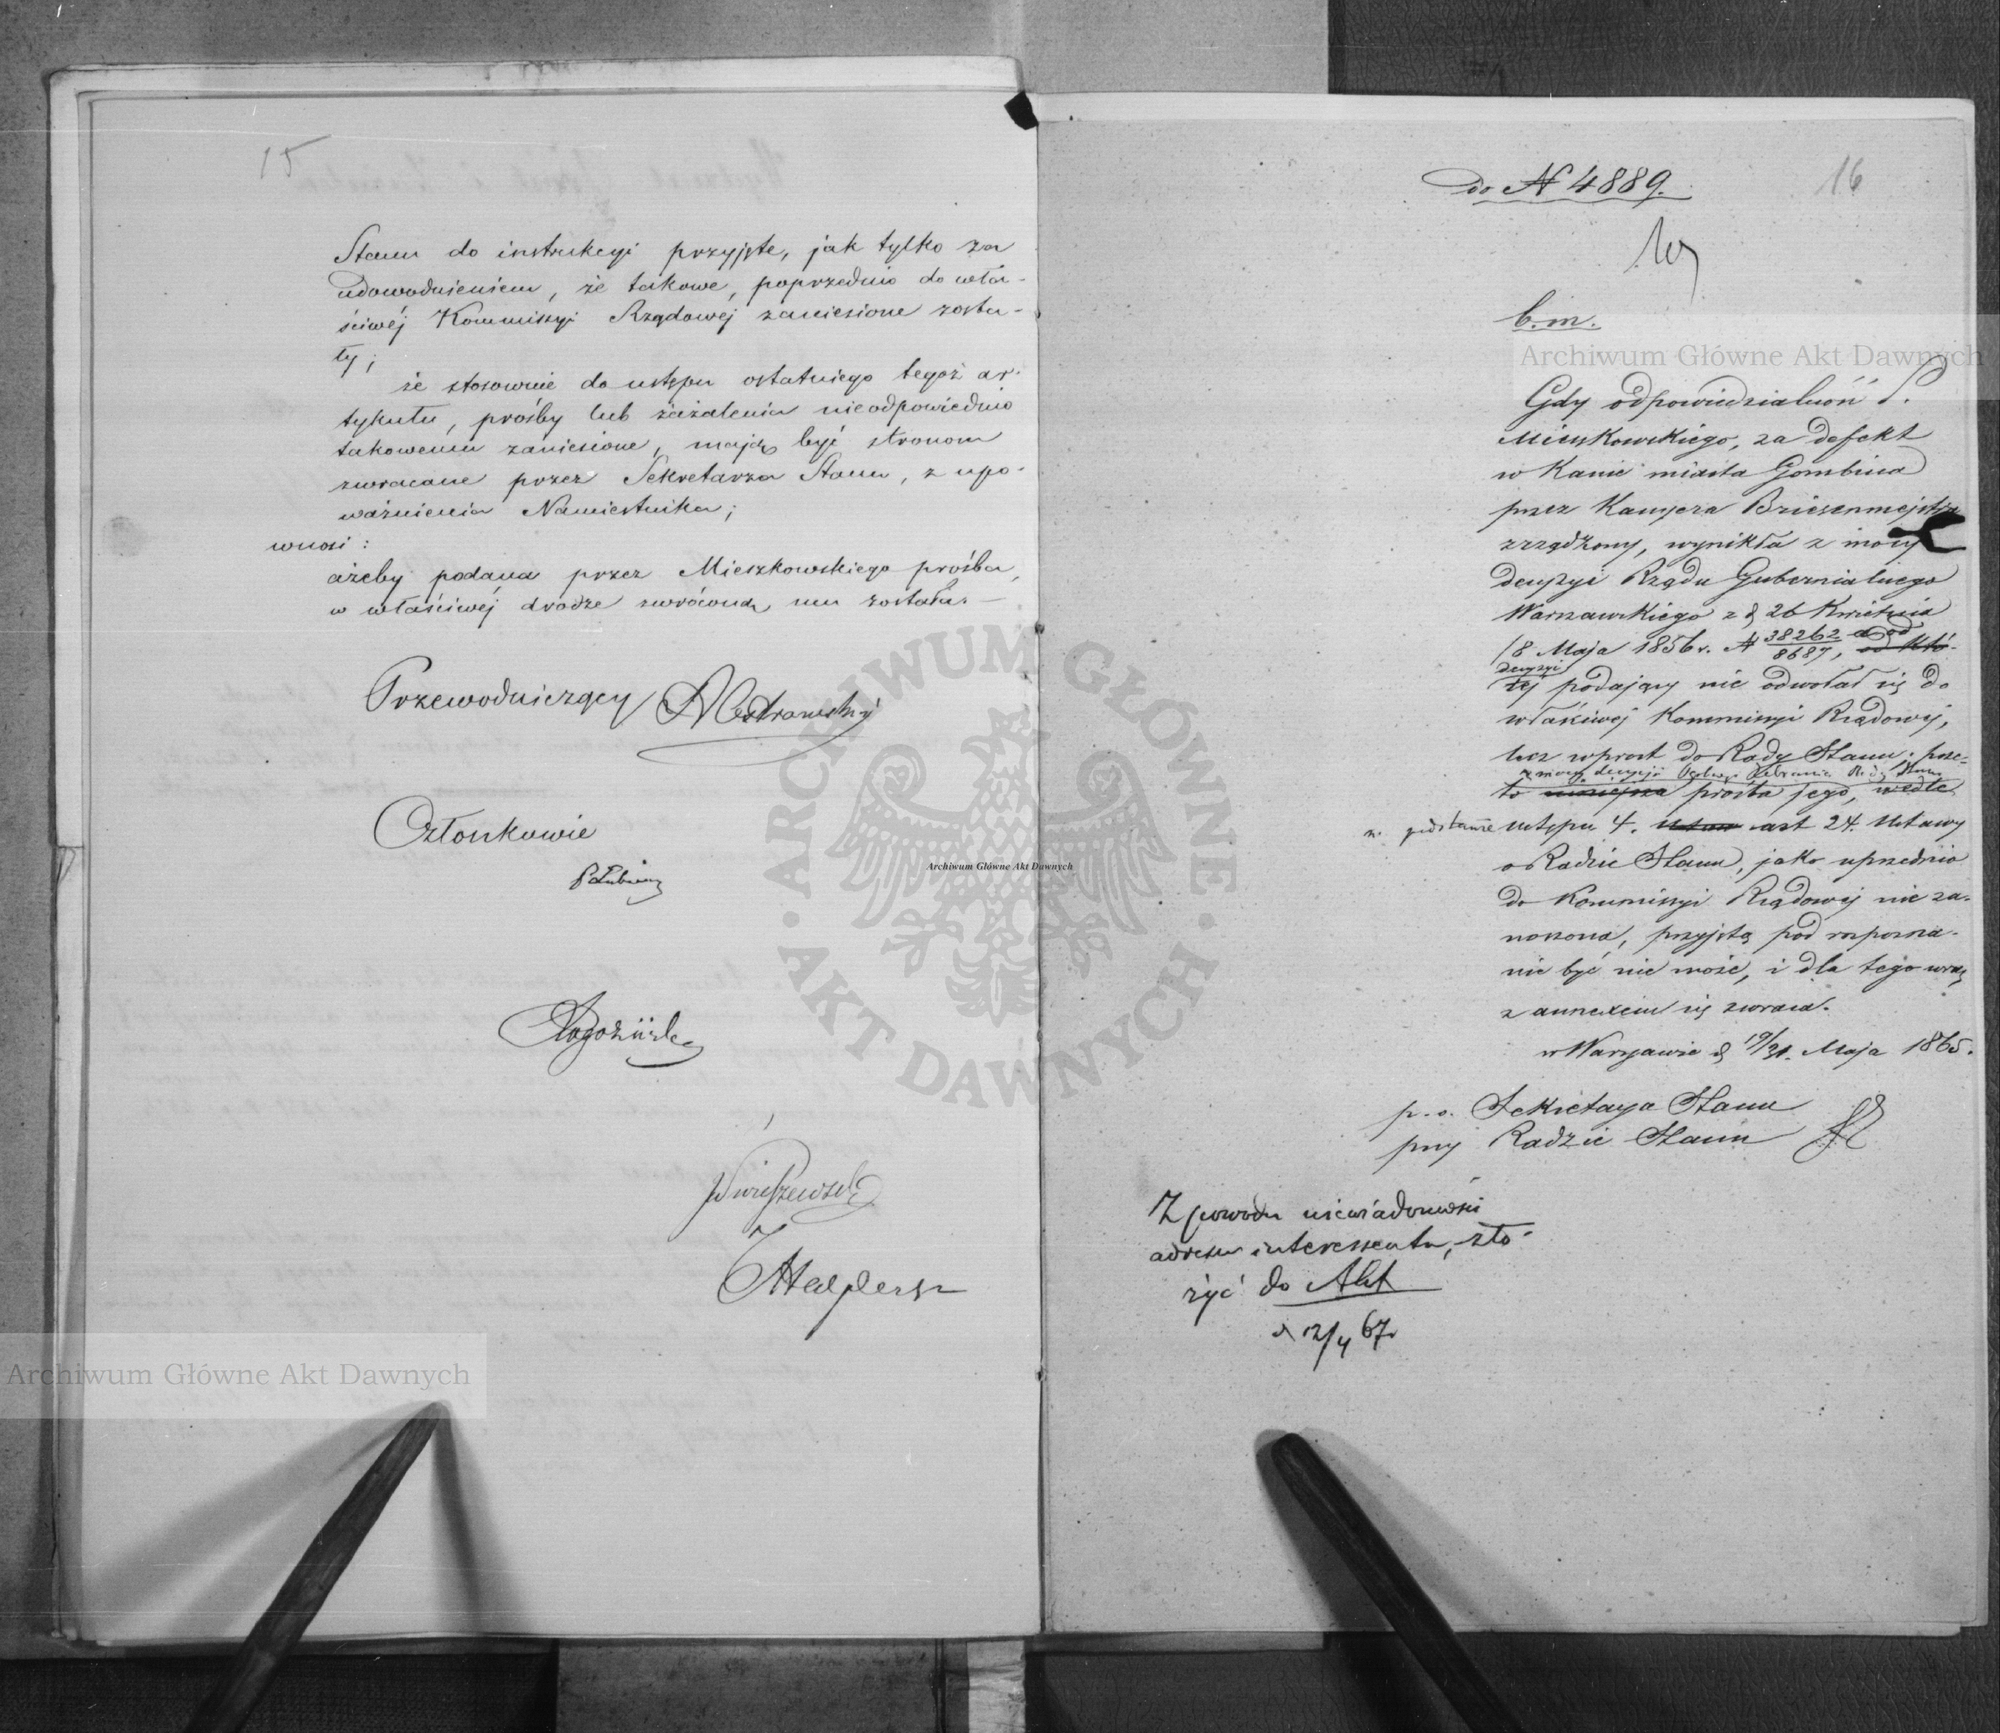 15
Stanu do instrukcyi przyjęte, jak tylko za
udowodnieniem, że takowe, poprzednio do wła-
ściwéj Kommissyi Rządowéj zaniesione zosta-
ły;
że stosownie do ustępu ostatniego tegoż ar-
tykułu, prośby lub zażalenia nieodpowiednio
takowemu zaniesione, mają być stronom
zwracane przez Sekretarza Stanu, z upo-
ważnienia Namiestnika;
wnosi:
ażeby podana przez Mieszkowskiego prośba,
w właściwéj drodze zwróconą mu została.
Przewodniczący
Członkowie
PŁubieński
Rogoziński
do N 4889.
16
b.m.
Gdy odpowiedzialność P.
Mieszkowskiego, za defekt
w Kassie miasta Gombina
przez Kassyera Briesenmejstra
zrządzony, wynikła z mocy
decyzyi Rządu Gubernialnego
Warszawskiego z d 26 Kwietnia
/8 Maja 1856 r. N 38262/8687, a od
od któ-
decyzyi
rej podający nie odwołał się do
właściwej Kommissyi Rządowej,
lecz wprost do Rady Stanu; prze-
z mocy decyzji Ogólnego Zebrania Rady Stanu
to niniejsza prośba jego, wedle
na podstawie ustępu 4. art 24. Ustawy
o Radzie Stanu, jako uprzednio
do Kommissyi Rządowej nie za-
noszona, przyjętą pod rozpozna-
nie być nie może, i dla tego wraz
z annexem się zwraca.
w Warszawie d 19/31. Maja 1865.
p.o. Sekretarza Stanu
przy Radzie Stanu
Z powodu niewiadomości
adresu interessenta, zło-
żyć do Akt
d 12/4 67r
Archiwum Główne Akt Dawnych
Archiwum Główne Akt Dawnych
Archiwum Główne Akt Dawnych
ARCHIWUM GŁÓWNE · AKT DAWNYCH ·